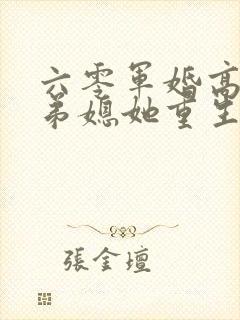 六零軍婚高
弟媳她重生
張金壇